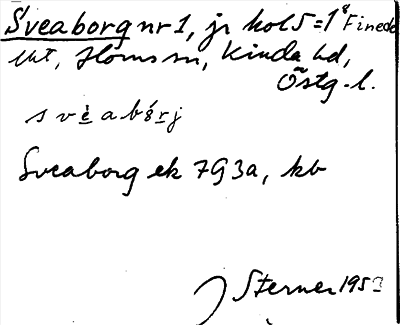 Sveaborg nr 1, jr kol 5 = 1⁸ Finede
Uht, Horns sn, Kinda hd,
Östg.l.
svèabórj
Sveaborg ek 7G3a, kb
J Sterner 195